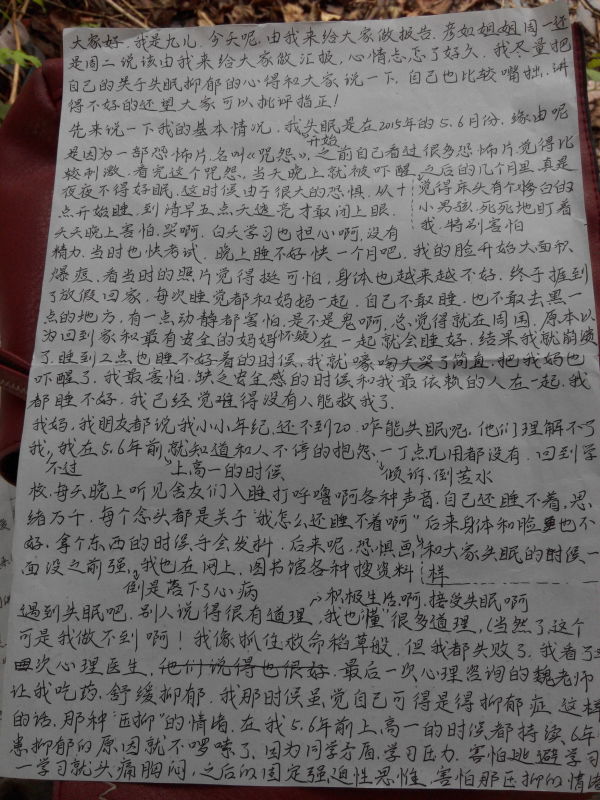 大家好，我是九儿，今天呢，由我来给大家做报告，彦如姐姐周一还
是周二说该由我来给大家做汇报，心情忐忑了好久，我尽量把
自己的关于失眠抑郁的心得和大家说一下，自己也比较嘴拙，讲
得不好的还望大家可以批评指正！
先来说一下我的基本情况，我失眠是在2015年的5.6月份，缘由呢
开始
是因为一部恐怖片，名叫《咒怨》，之前自己看过很多恐怖片觉得比
较刺激，看完这个咒怨，当天晚上就被吓醒，之后的几个月里，真是
夜夜不得好眠，这时候由于很大的恐惧，从十 觉得床头有个惨白的
点开始睡，到清早五点天透亮才敢闭上眼， 小男孩，死死地盯着
天天晚上害怕，哭啊，白天学习也担心啊，没有 我，特别害怕
精力，当时也快考试，晚上睡不好快一个月吧，我的脸开始大面积
爆痘，看当时的照片觉得挺可怕，身体也越来越不好，终于捱到
了放假回家，每次睡觉都和妈妈一起，自己不敢睡，也不敢去黑一
点的地方，有一点动静都害怕，是不是鬼啊，总觉得就在周围，原本以
为回到家和最有安全的妈妈(怀疑)在一起就会睡好，结果我就崩溃
了，睡到2点也睡不好着的时候，我就嚎啕大哭了简直，把我妈也
吓醒了，我最害怕，缺乏安全感的时候和我最依赖的人在一起，我
都睡不好，我已经觉难得没有人能救我了，
我妈，我朋友都说我小小年纪，还不到20，咋能失眠呢，他们理解不了
我，我在5.6年前，就知道和人不停的抱怨，一丁点儿用都没有，回到学
不过 上高一的时候 倾诉，倒苦水
校，每天晚上听见舍友们入睡打呼噜啊各种声音，自己还睡不着，思
绪万千，每个念头都是关于“我怎么还睡不着啊”后来身体和脸也不
好，拿个东西的时候手会发抖，后来呢，恐惧画，和大家失眠的时候一
面没之前强，我也在网上，图书馆各种搜资料 样
倒是落下了心病 积极生活啊，接受失眠啊
遇到失眠吧，别人说得很有道理，我也“懂”很多道理，(当然了，这个
可是我做不到啊！我像抓住救命稻草般，但我都失败了，我看了
四次心理医生，他们说得也很好，最后一次心理咨询的魏老师
让我吃药，舒缓抑郁，我那时候虽觉自己可得是得抑郁症，这样
的话，那种“压抑”的情绪，在我5.6年前上高一的时候都持续，6年
患抑郁的原因就不啰嗦了，因为同学矛盾，学习压力，害怕逃避学习
一学习就头痛胸闷，之后的固定强迫性思维，害怕那压抑的情绪